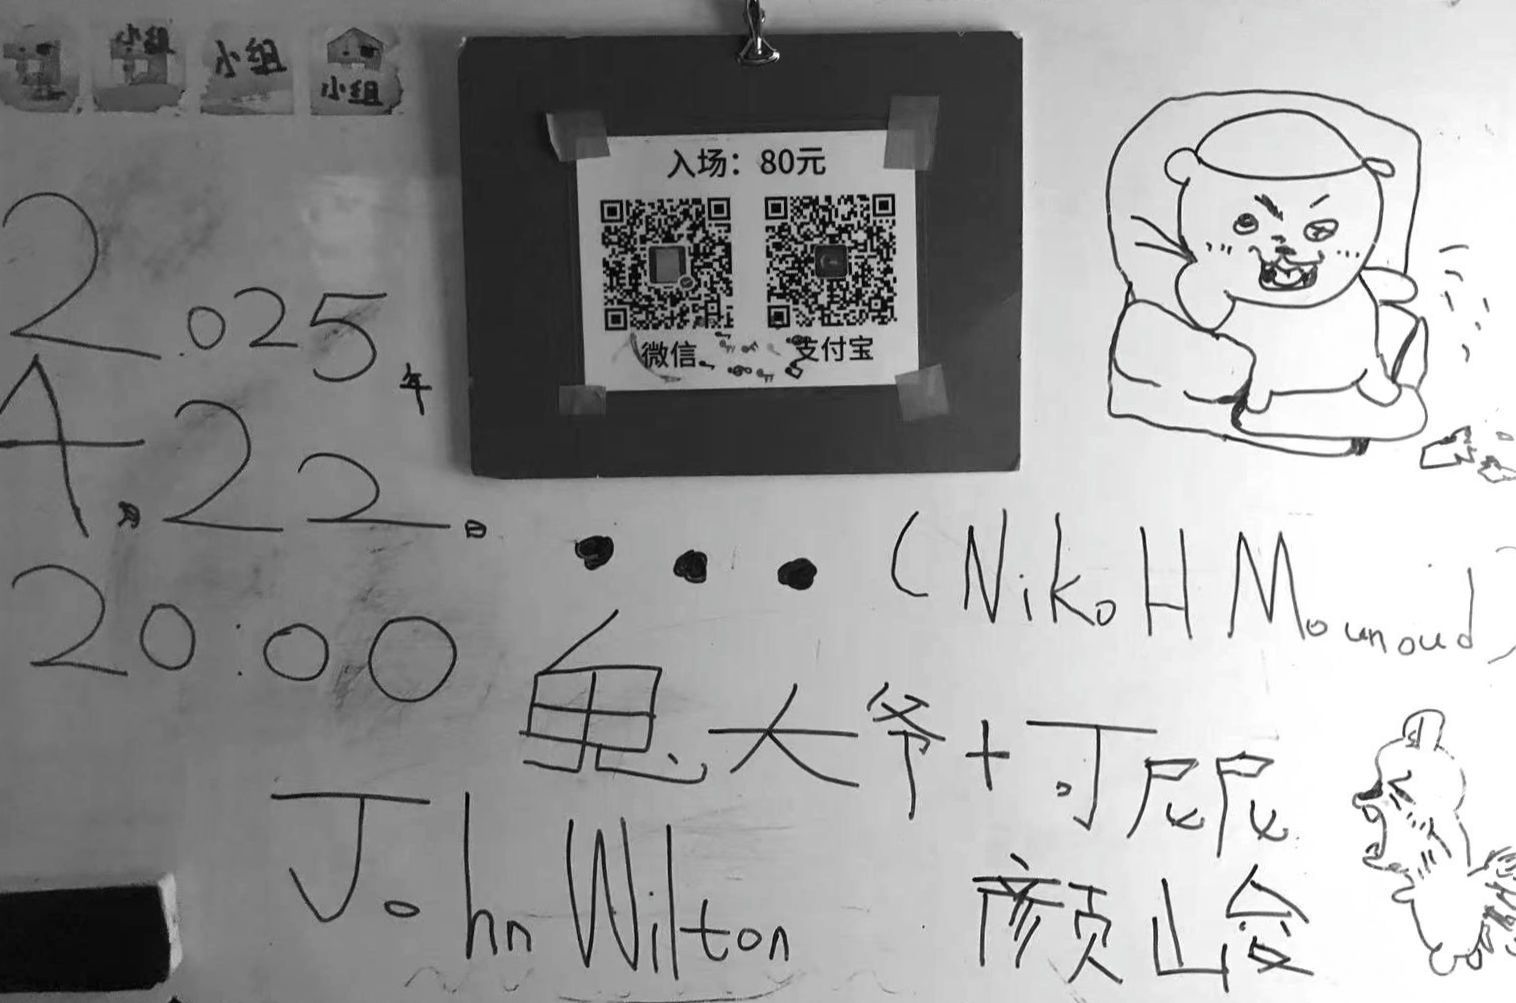 小组
小组
小组
入场：80元
微信 支付宝
2025年
4月22日
20:00
●●● (Niko H Mounoud)
龟大爷+丁尼尼
John Wilton
颜峻